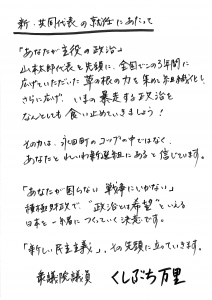 新・共同代表の就任にあたって
「あなたが主役の政治」
山本太郎代表を先頭に、全国でこの3年間に
広げていただいた草の根の力を集め組織化し
さらに広げ、いまの暴走する政治を
なんとしても食い止めていきましょう！
その力は、永田町のコップの中ではなく、
あなたとれいわ新選組にあると信じています。
「あなたが困らない 戦争にいかない」
積極財政で、“政治とは希望”といえる
日本を一緒につくっていく決意です。
「新しい民主主義」、その先頭に立っていきます。
衆議院議員 くしぶち万里